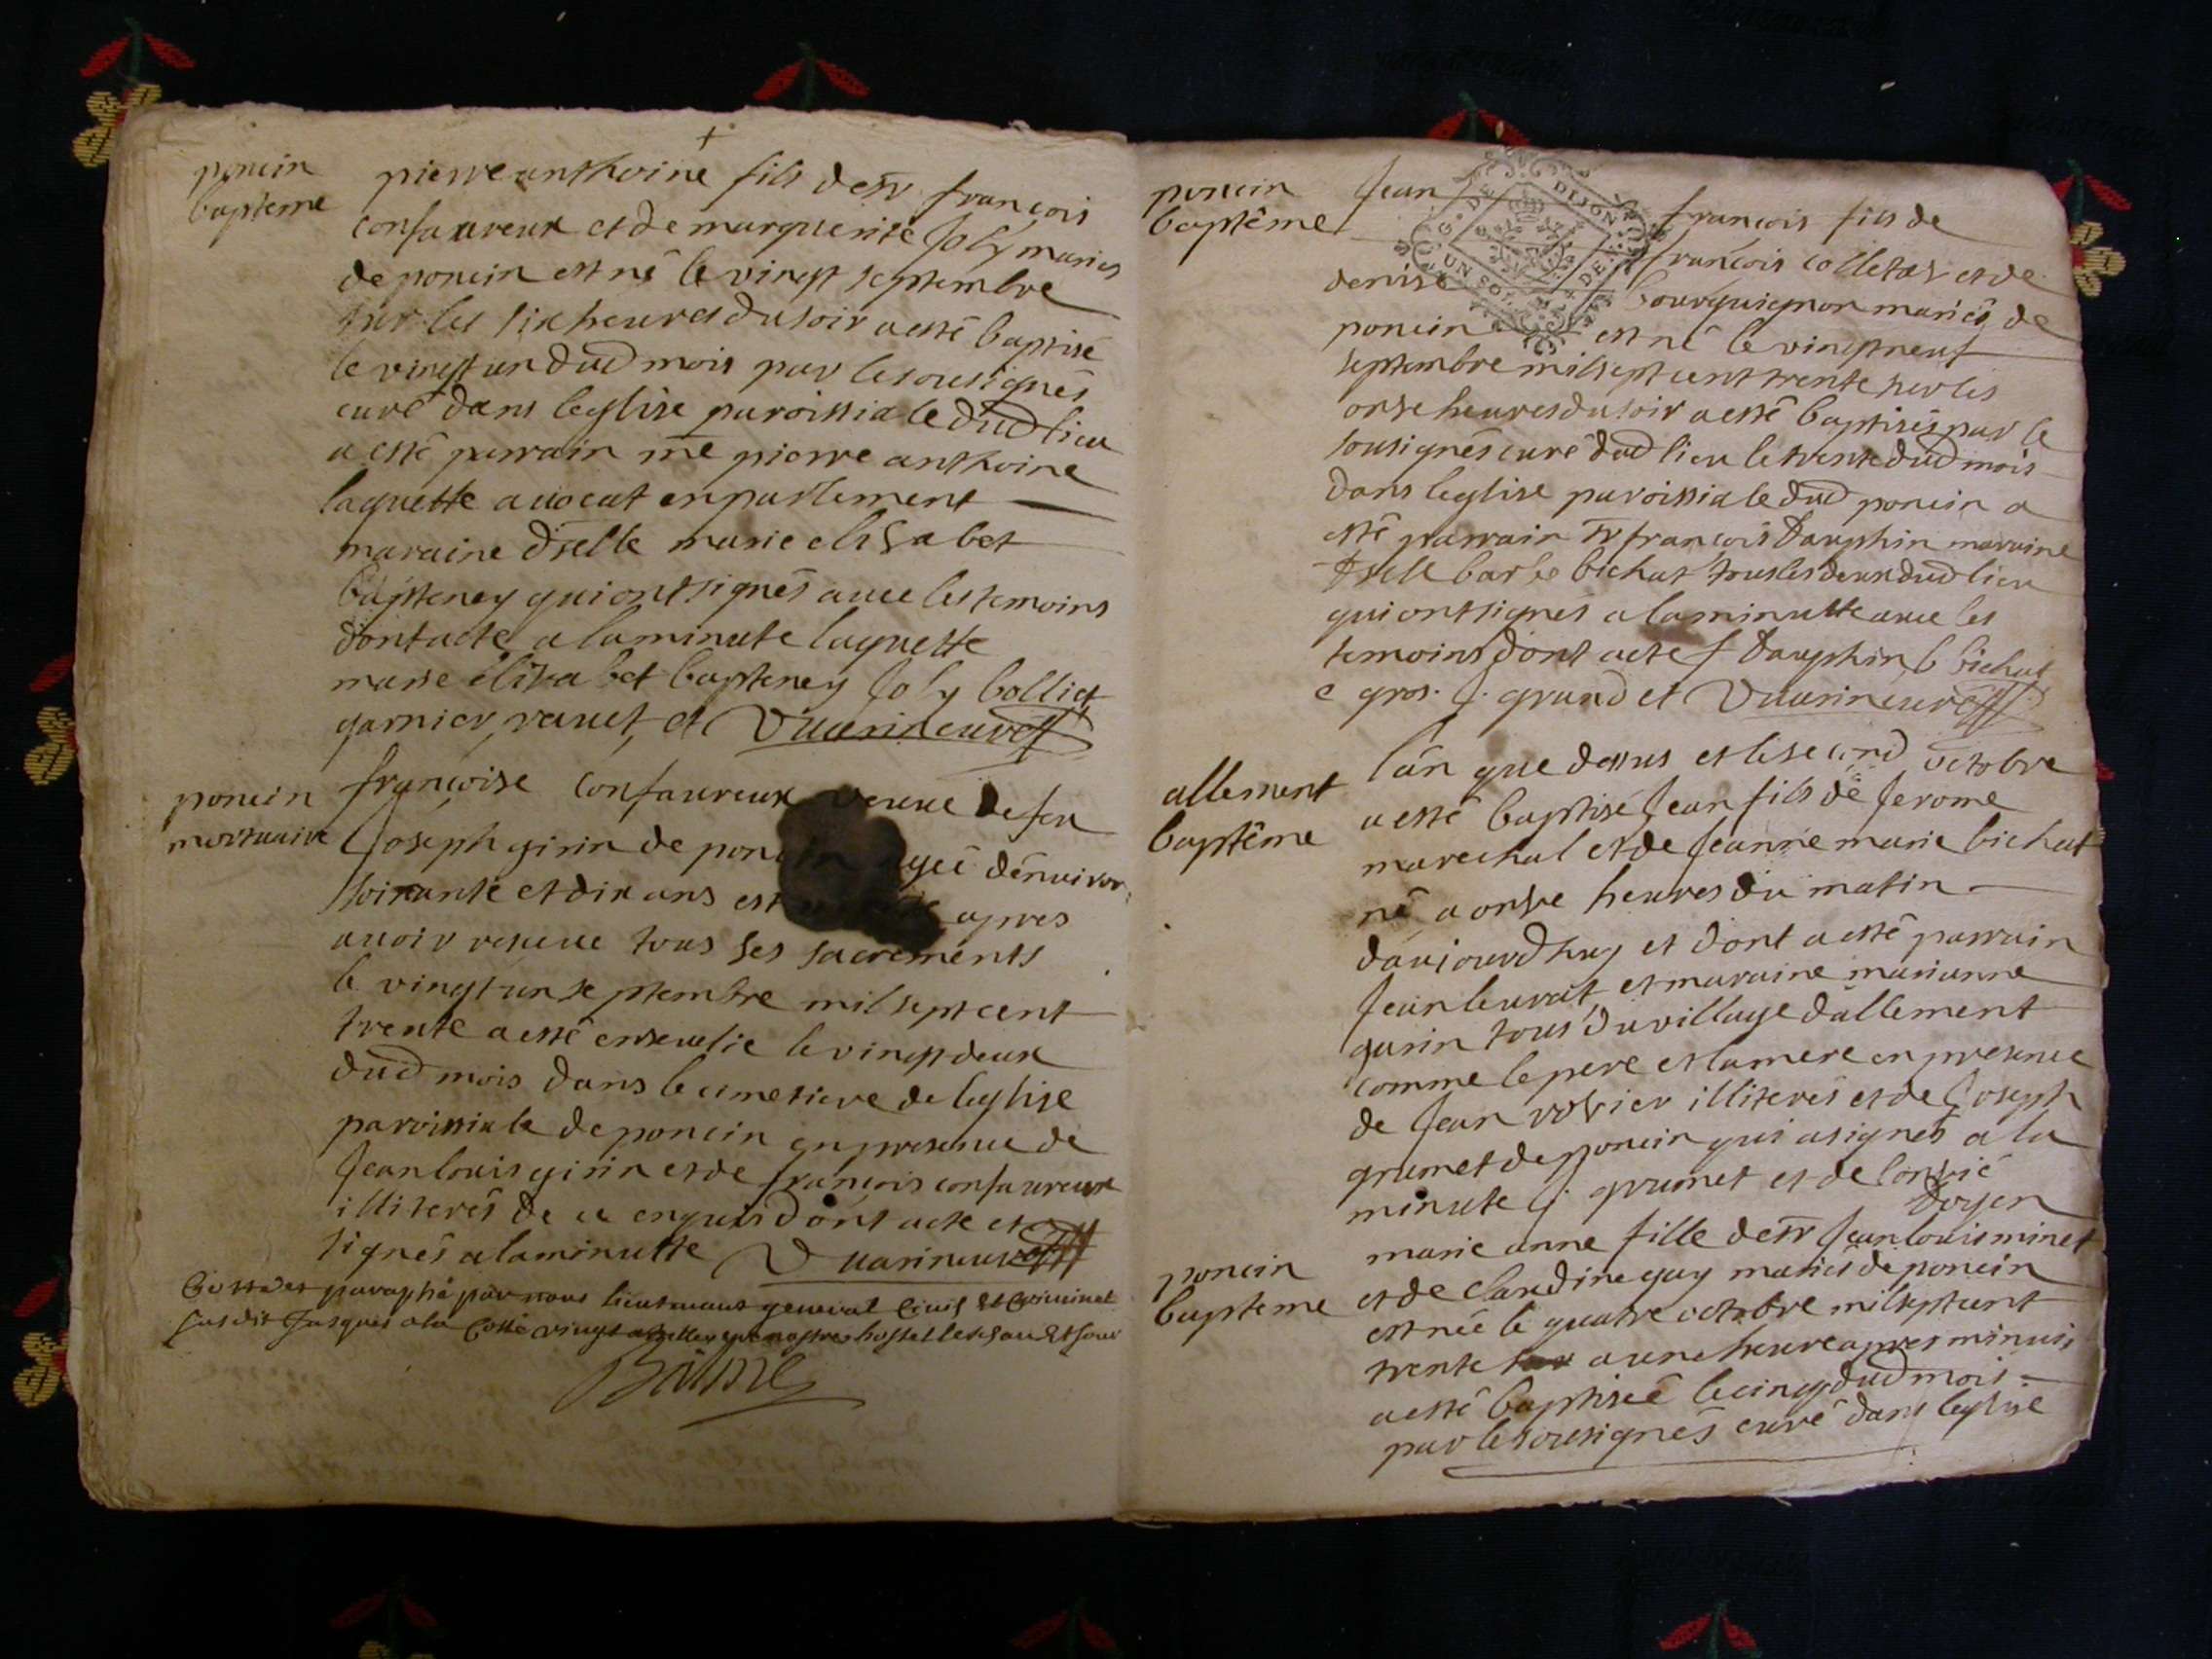 poncin
bapteme
pierre anthoine fils de sr françois
confavreux et de marguerite Joly maries
de poncin est né le vingt septembre
sur les six heures du soir a esté baptisé
le vingt un dud mois par le sousignés
curé dans leglise paroissiale dud lieu
a esté parrain me pierre anthoine
laguette avocat en parlement
maraine dselle marie elisabet
bapteney qui ont signés avec les temoins
dont acte a la minute laguette
marie elizabet bapteney Joly bolliet
garnier, ravet, et Vuarin curé
poncin
mortuaire
françoise confavreux veuve de feu
Joseph girin de poncin agée denviron
soixante et dix ans est apres
avoir reçeue tous ses sacrements
le vingt un septembre mil sept cent
trente a esté ensevelie le vingt deux
dud mois dans le cimetiere de leglise
paroissiale de poncin en presence de
Jean louis girin et de françois confavreux
illiterés de ce enquis dont acte et
signés a la minutte Vuarin curé
Cotté et paraphé par nous lieutenant general Civil et Criminel
susdit Jusques a la Cotte vingt
poncin
baptême
Jean françois fils de
françois colletaz et de
denise bourguignon mariés de
poncin est né le vingt neuf
septembre mil sept cent trente sur les
onze heures du soir a esté baptisés par le
sousignés curé dud lieu le trente dud mois
dans leglise paroissiale dud poncin a
esté parrain sr françois Dauphin maraine
dselle barbe bichat tous les deux dud lieu
qui ont signés a la minutte avec les
temoins dont acte f Dauphin b bichat
c gros. J. grand et Vuarin curé
allement
baptême
lan que dessus et le second octobre
a esté baptisé Jean fils de Jerome
marechal et de Jeanne marie bichat
né a onze heures du matin
daujourdhuy et dont a esté parrain
Jean levrat et maraine marianne
gurin tous du village dallement
comme le pere et la mere en presence
de Jean rosier illiterés et de Joseph
grumet de poncin qui a signés a la
minute J. grumet et de
doyen
poncin
bapteme
marie anne fille de sr Jean louis minet
et de claudine guy mariés de poncin
est née le quatre octobre mil sept cent
trente a une heure apres minuit
a esté baptisée le cinq dud mois
par le sousignés curé dans leglise
UN SOL
G. DE DIJON